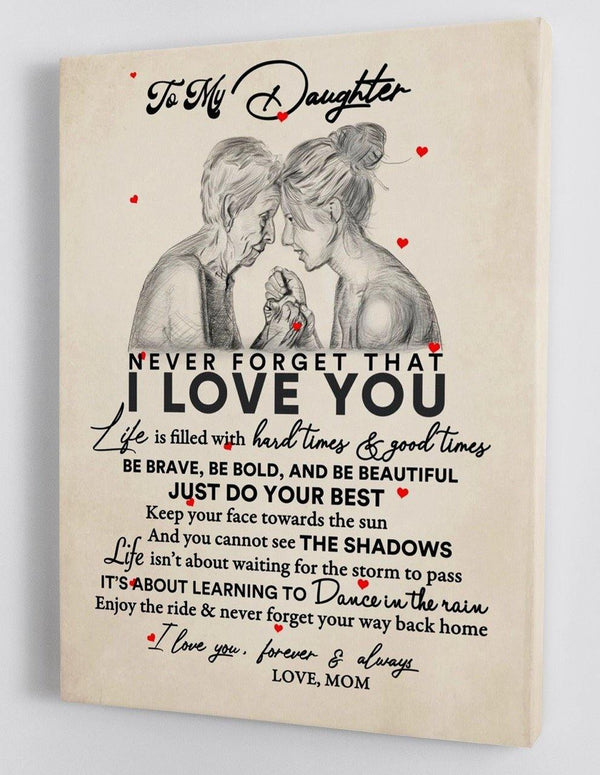 To My Daughter
NEVER FORGET THAT
I LOVE YOU
Life is filled with hard times & good times
BE BRAVE, BE BOLD, AND BE BEAUTIFUL
JUST DO YOUR BEST
Keep your face towards the sun
And you cannot see THE SHADOWS
Life isn't about waiting for the storm to pass
IT'S ABOUT LEARNING TO Dance in the rain
Enjoy the ride & never forget your way back home
I love you, forever & always
LOVE, MOM